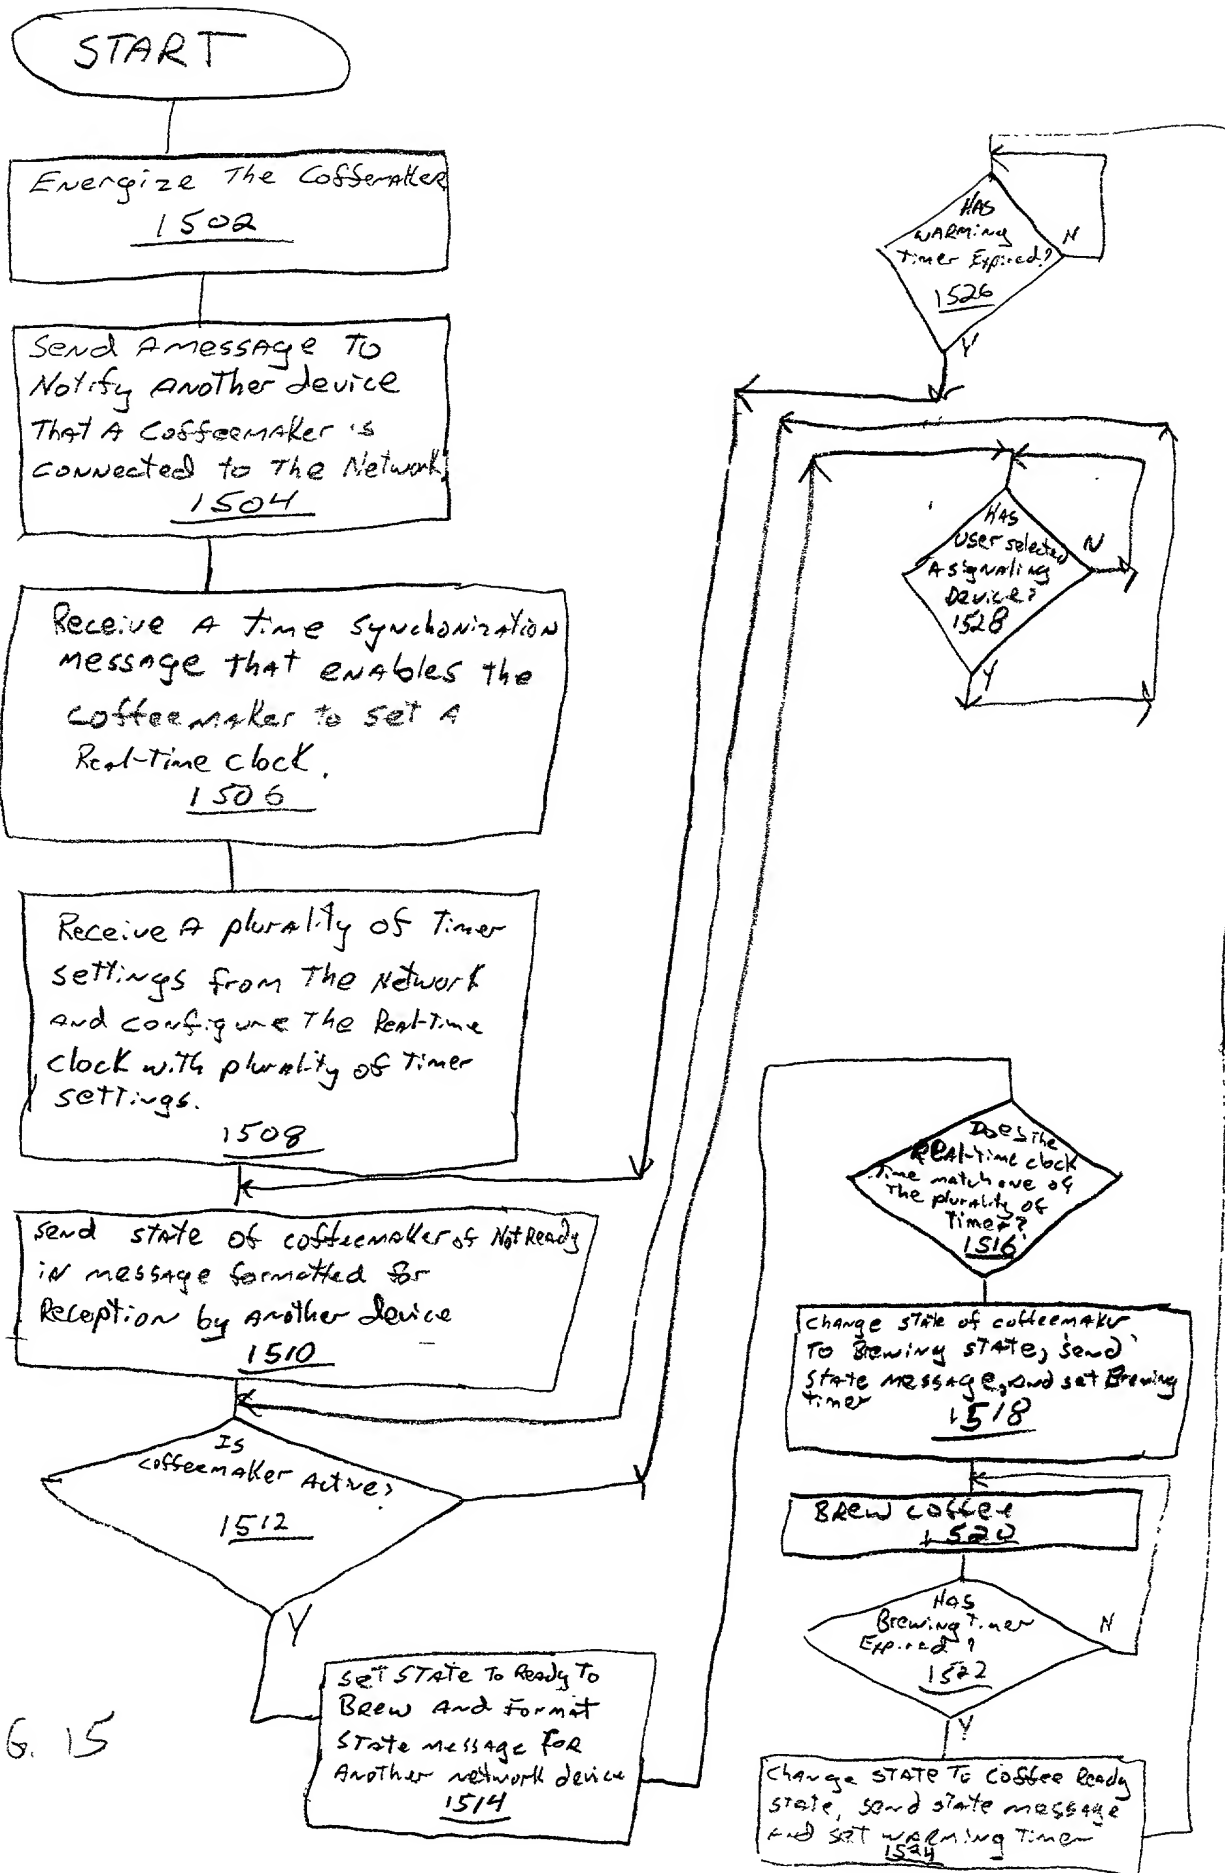 START
Energize The Coffemaker
1502
Send A message To
Notify Another device
That A Coffeemaker is
connected to The Network.
1504
Receive A time synchonization
message that enables the
coffeemaker to set A
Real-Time clock.
1506
Receive A plurality of Timer
settings from The Network
and configure The Real-Time
clock with plurality of Timer
settings.
1508
send state of coffeemaker of Not Ready
in message formatted for
Reception by another device
1510
Is
coffeemaker Active?
1512
Y
set STATE To Ready To
Brew And Format
State message for
Another network device
1514
G. 15
Has
warming
Timer Expired?
1526
N
Y
Has
User selected
A signaling
Device?
1528
N
Y
Does the
Real-Time clock
Time match one of
The plurality of
Times?
1516
change state of coffeemaker
To Brewing state, send
state message, and set Brewing
timer
1518
Brew coffee
1520
Has
Brewing Timer
Expired?
1522
N
Y
Change STATE To Coffee Ready
state, send state message
and set warming Timer
1524